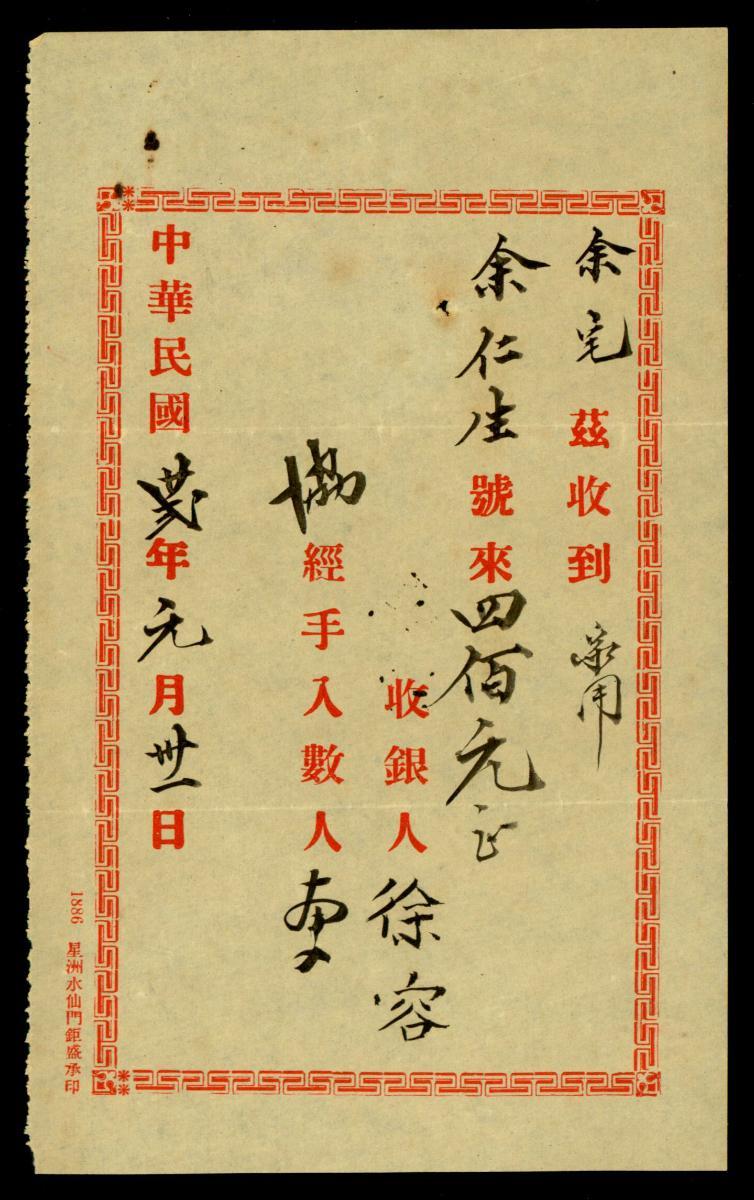 余宅 茲收到 家用
余仁生號來四佰元正
收銀人徐容
協經手入數人
中華民國 年元月卅一日
1886 星洲水仙門鉅盛承印